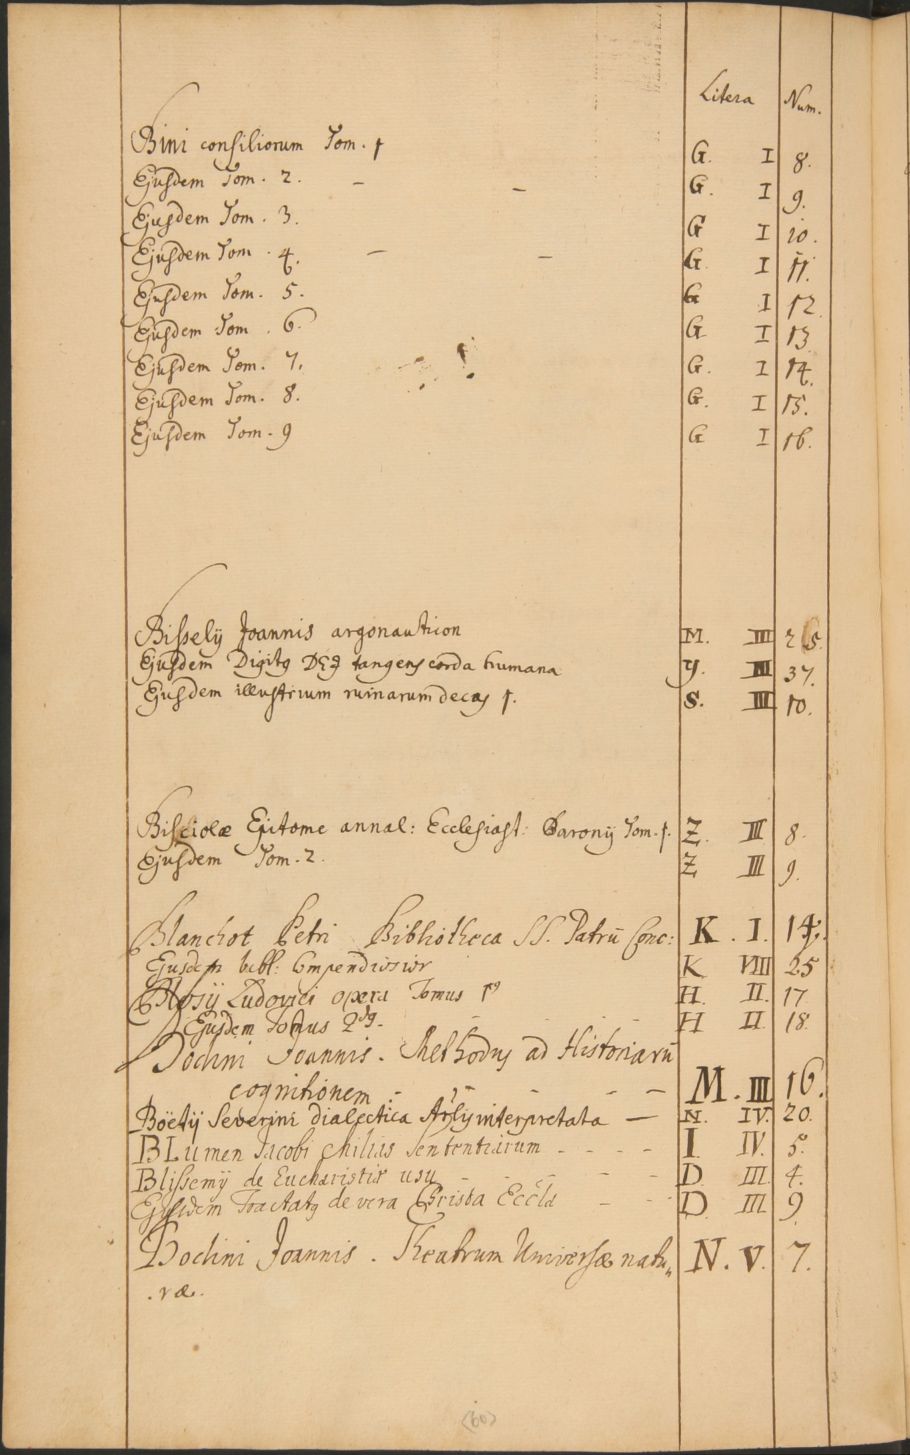 Litera Num.
Bini consiliorum Tom. 1 G. I 8.
Ejusdem Tom. 2. – – G. I 9.
Ejusdem Tom. 3. G I 10.
Ejusdem Tom. 4. – – G. I 11.
Ejusdem Tom. 5. G I 12.
Ejusdem Tom. 6. G I 13.
Ejusdem Tom. 7. G. I 14.
Ejusdem Tom. 8. G. I 15.
Ejusdem Tom. 9 G I 16.
Bisselij Joannis argonauticon M. III 26.
Ejusdem Digitq tangens corda humana y. III 37.
Ejusdem illustrium ruinarum decas 1. S. III 10.
Bisciolæ Epitome annal: Ecclesiast: Baronij Tom. 1. Z. III 8.
Ejusdem Tom. 2. Z III 9.
Blanchot Petri Bibliotheca SS. Patrū Conc: K. I. 14.
Ejusdem bibl: K VIII 25
Blosij Ludovici opera Tomus 1⁹ H. II. 17
Ejusdem Tomus 2dg. – – – – H II. 18.
Bodini Joannis. Methodus ad Historiarū
cognitionem – – – – – M. III 16.
Boëtij Severini dialectica interpretata — N. IV. 20.
BLumen Jacobi chilias sententiarum - - - - I IV. 5.
Blissemij de Eucharistiæ usu - - - - - D. III. 4.
Ejusdem Tractatq de vera Christa Eccla - - - D III. 9
Bodini Joannis. Theatrum Universæ natu„ N. V. 7.
.ræ.
(60)